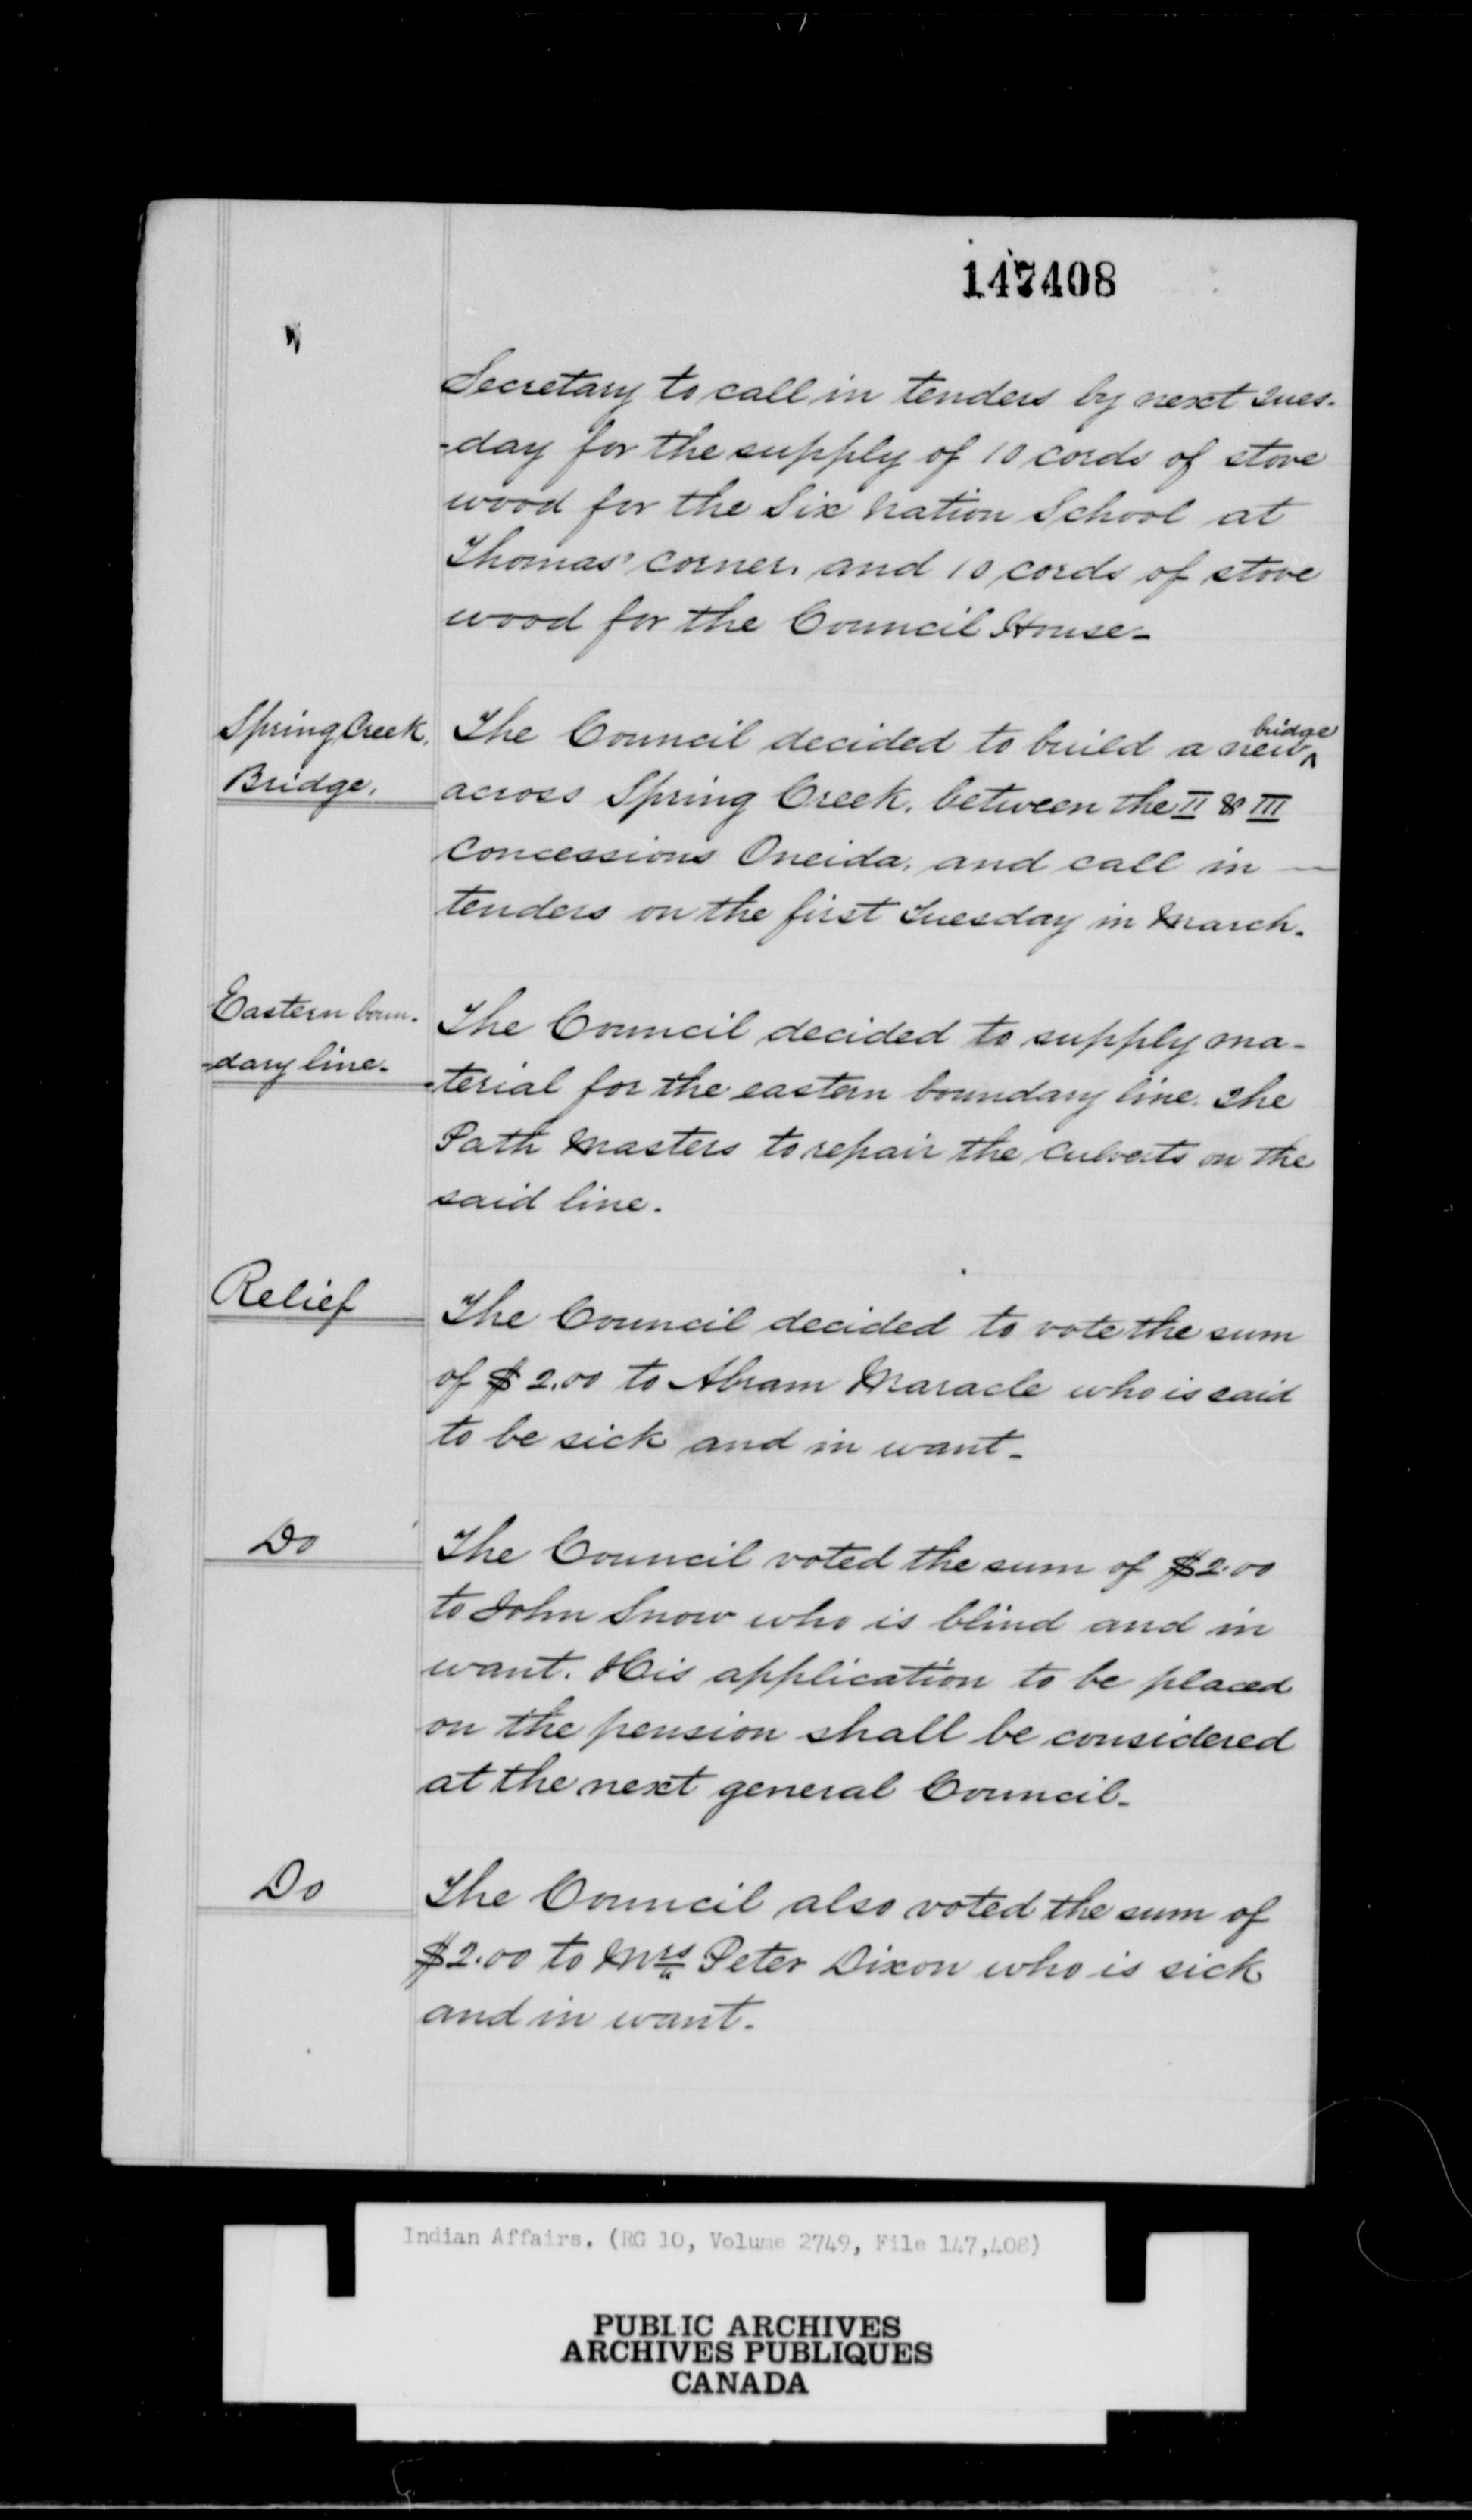 147408
Secretary to call in tenders by next Tues-
-day for the supply of 10 cords of stove
wood for the Six Nation School at
Thomas' corner. and 10 cords of stove
wood for the Council House-
Spring Creek.
Bridge.
The Council decided to build a new ^bridge
across Spring Creek, between the II & III
Concessions Oneida, and call in —
tenders on the first Tuesday in March.
Eastern boun-
-dary line.
The Council decided to supply ma-
-terial for the eastern boundary line. The
Path Masters to repair the culverts on the
said line.
Relief
The Council decided to vote the sum
of $2.00 to Abram Maracle who is said
to be sick and in want-
Do
The Council voted the sum of $2.00
to John Snow who is blind and in
want. His application to be placed
on the pension shall be considered
at the next general Council-
Do
The Council also voted the sum of
$2.00 to Mrs Peter Dixon who is sick
and in want.
Indian Affairs. (RG 10, Volume 2749, File 147,408)
PUBLIC ARCHIVES
ARCHIVES PUBLIQUES
CANADA